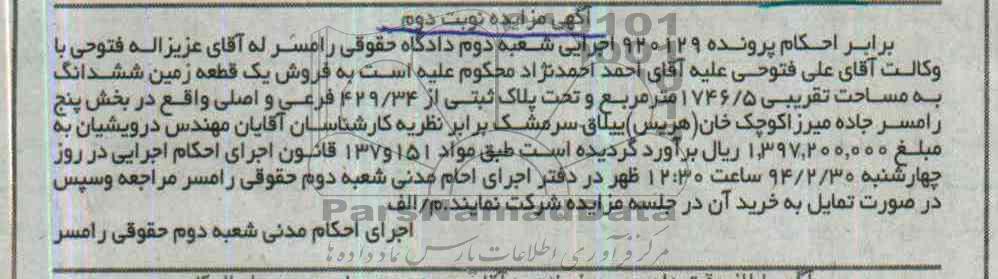 آگهی مزایده نوبت دوم
برابر احکام پرونده ۹۲۰۱۲۹ اجرایی شعبه دوم دادگاه حقوقی رامسر له آقای عزیزاله فتوحی با
وکالت آقای علی فتوحی علیه آقای احمد احمدنژاد محکوم علیه است به فروش یک قطعه زمین ششدانگ
به مساحت تقریبی ۱۷۴۶/۵مترمربع و تحت پلاک ثبتی از ۴۲۹/۳۴ فرعی و اصلی واقع در بخش پنج
رامسر جاده میرزاکوچک خان(هریس)ییلاق سرمشک برابر نظریه کارشناسان آقایان مهندس درویشیان به
مبلغ ۱,۳۹۷,۲۰۰,۰۰۰ ریال برآورد گردیده است طبق مواد ۱۵۱و۱۳۷ قانون اجرای احکام اجرایی در روز
چهارشنبه ۹۴/۲/۳۰ ساعت ۱۲:۳۰ ظهر در دفتر اجرای احام مدنی شعبه دوم حقوقی رامسر مراجعه وسپس
در صورت تمایل به خرید آن در جلسه مزایده شرکت نمایند.م/الف
ParsNamadData
اجرای احکام مدنی شعبه دوم حقوقی رامسر
مرکز فرآوری اطلاعات پارس نماد داده ها